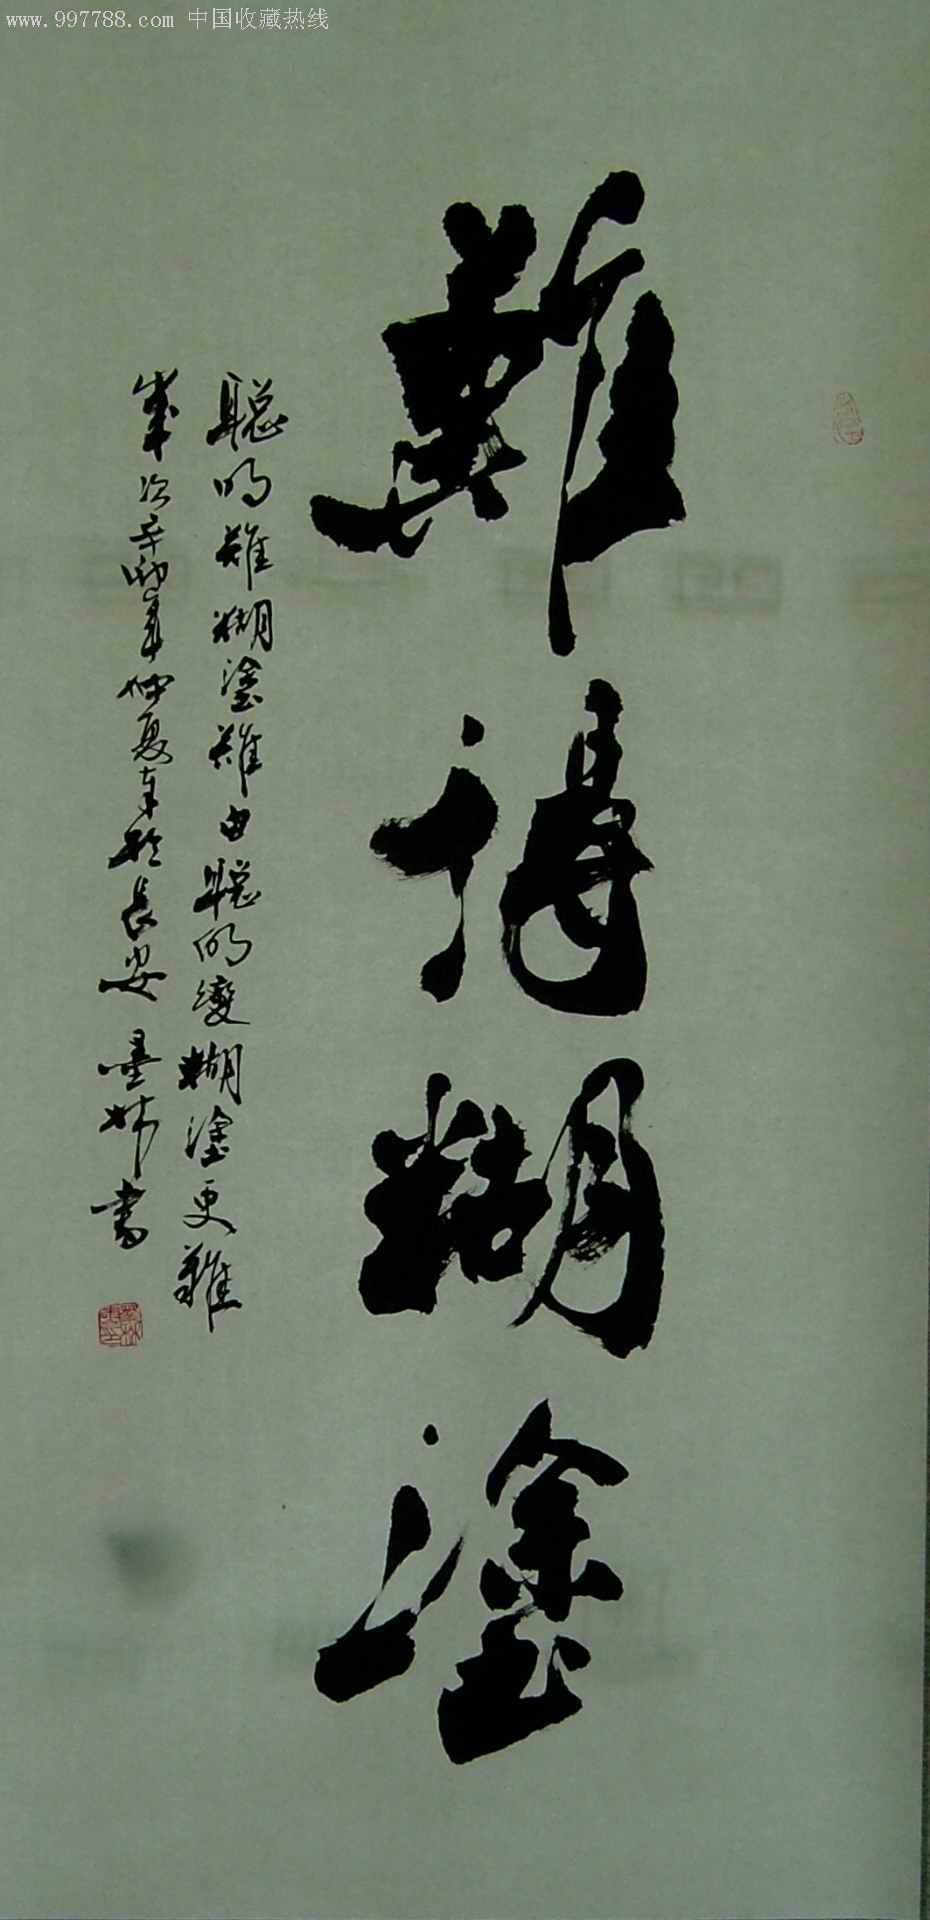 www.997788.com 中国收藏热线
難得糊塗
聪明難糊塗難由聪明變糊塗更難
歲次辛卯年仲夏月於長安墨林書